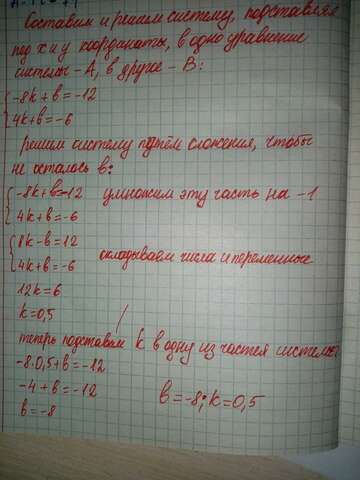 Составим и решим систему, подставляя
под x и y координаты, в одно уравнение
системы - А, в другое - В:
{-8k+b=-12
{4k+b=-6
решим систему путём сложения, чтобы
не осталось b:
{-8k+b=-12 умножим эту часть на -1
{4k+b=-6
{8k-b=12
{4k+b=-6 складываем числа и переменные
12k=6
k=0,5
теперь подставим k в одну из частей системы:
-8·0,5+b=-12
-4+b=-12 b=-8; k=0,5
b=-8